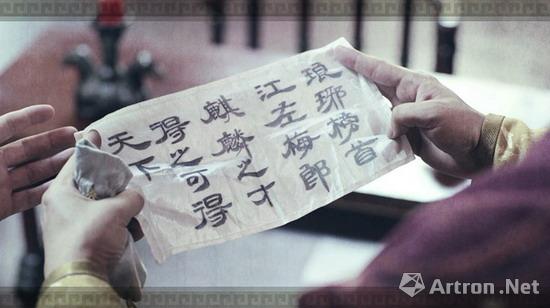 琅琊榜首
江左梅郎
麒麟之才
得之可得
天下
Artron.Net